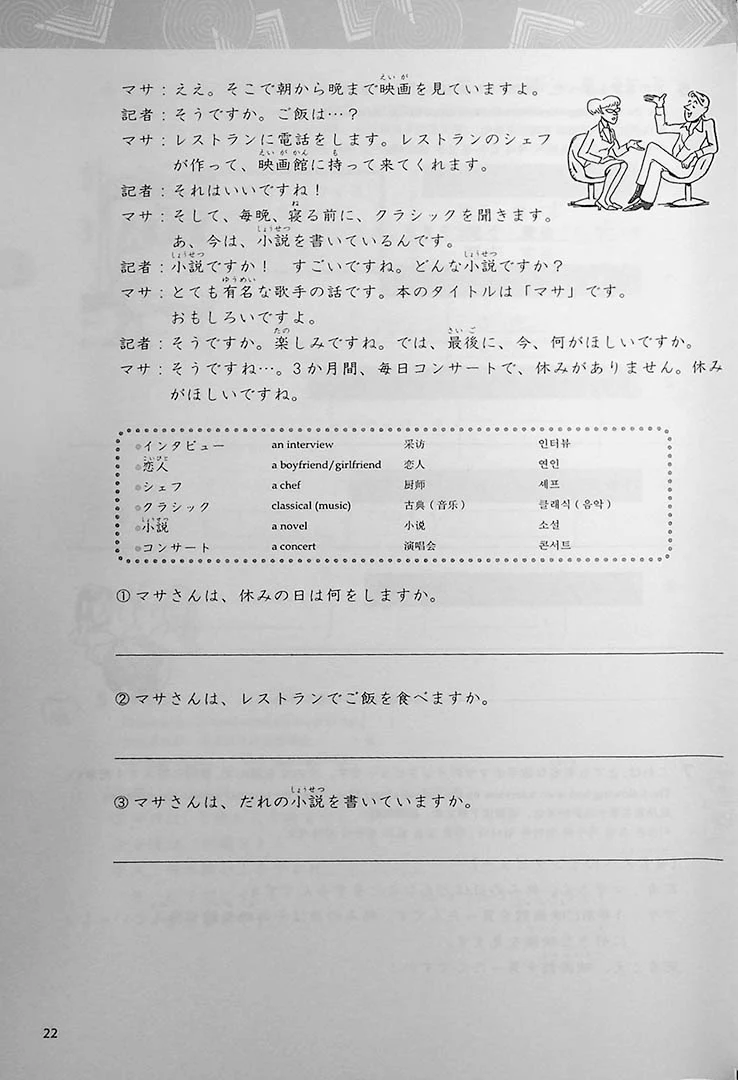 マサ：ええ。そこで朝から晩まで映画を見ていますよ。
記者：そうですか。ご飯は…？
マサ：レストランに電話をします。レストランのシェフ
が作って、映画館に持って来てくれます。
記者：それはいいですね！
マサ：そして、毎晩、寝る前に、クラシックを聞きます。
あ、今は、小説を書いているんです。
記者：小説ですか！　すごいですね。どんな小説ですか？
マサ：とても有名な歌手の話です。本のタイトルは「マサ」です。
おもしろいですよ。
記者：そうですか。楽しみですね。では、最後に、今、何がほしいですか。
マサ：そうですね…。3か月間、毎日コンサートで、休みがありません。休み
がほしいですね。
インタビュー an interview 采访 인터뷰
恋人 a boyfriend/girlfriend 恋人 연인
シェフ a chef 厨师 셰프
クラシック classical (music) 古典（音乐） 클래식（음악）
小説 a novel 小说 소설
コンサート a concert 演唱会 콘서트
①マサさんは、休みの日は何をしますか。
②マサさんは、レストランでご飯を食べますか。
③マサさんは、だれの小説を書いていますか。
22